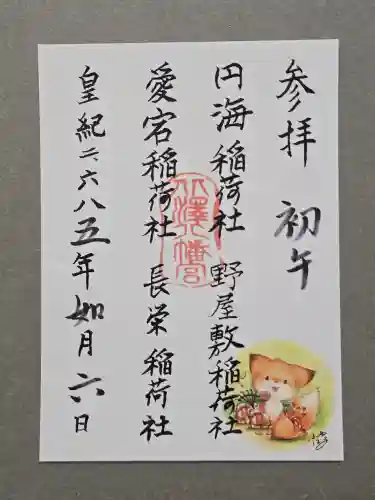 参拝 初午
円海稲荷社 野屋敷稲荷社
愛宕稲荷社 長栄稲荷社
皇紀二、六八五年如月六日